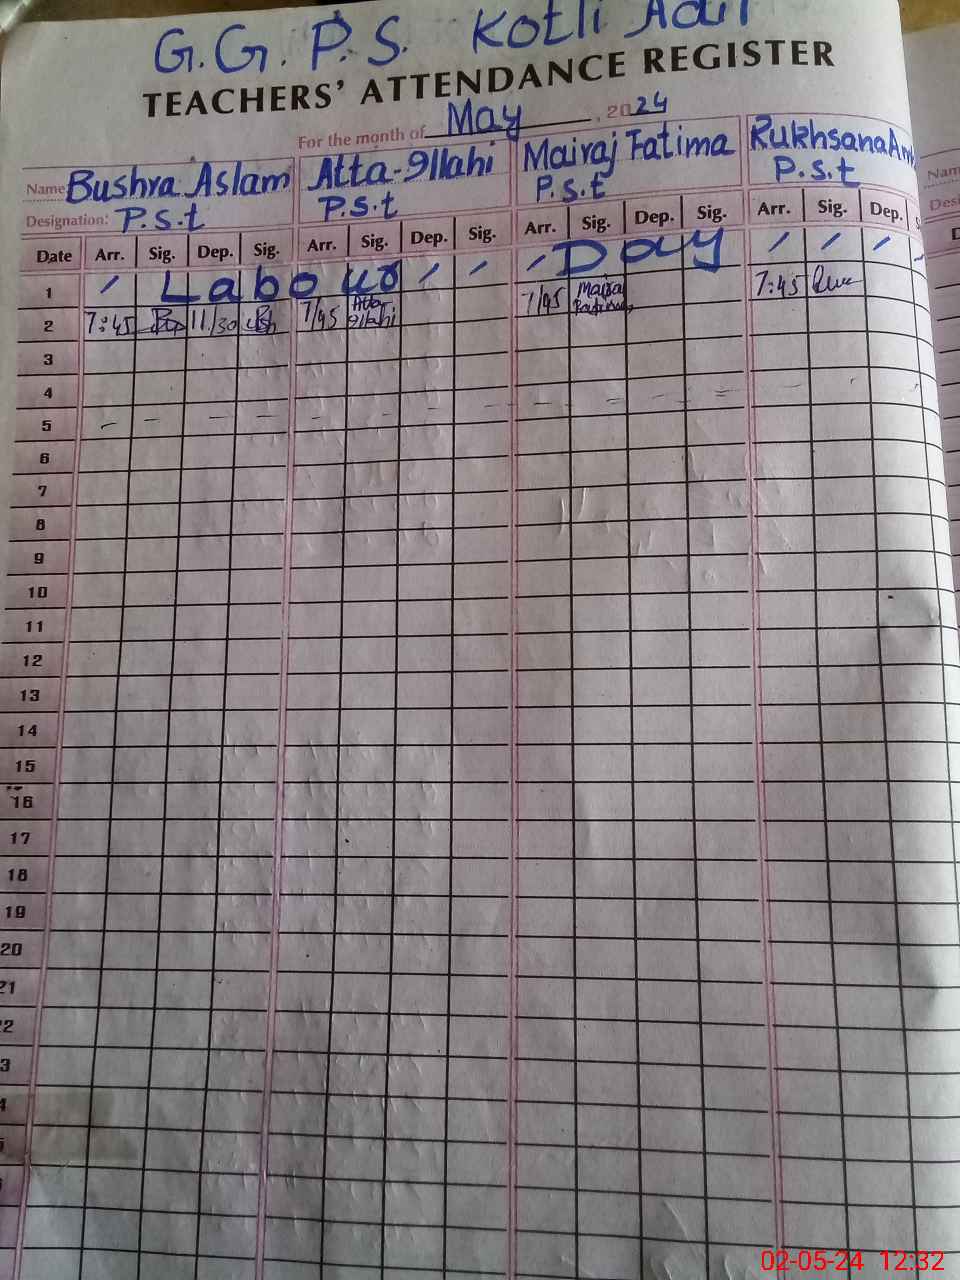 G.G.P.S. Kotli Adil
TEACHERS' ATTENDANCE REGISTER
For the month of May, 2024
Name: Bushra Aslam Atta-Illahi Mairaj Fatima Rukhsana
Designation: P.S.t P.S.t P.S.t P.S.t
Date Arr. Sig. Dep. Sig. Arr. Sig. Dep. Sig. Arr. Sig. Dep. Sig. Arr. Sig. Dep.
1 Labour Day
2 7:45 11/30 7/45 Atta Illahi 7/45 Mairaj Fatima 7:45
3
4
5
6
7
8
9
10
11
12
13
14
15
16
17
18
19
20
21
02-05-24 12:32